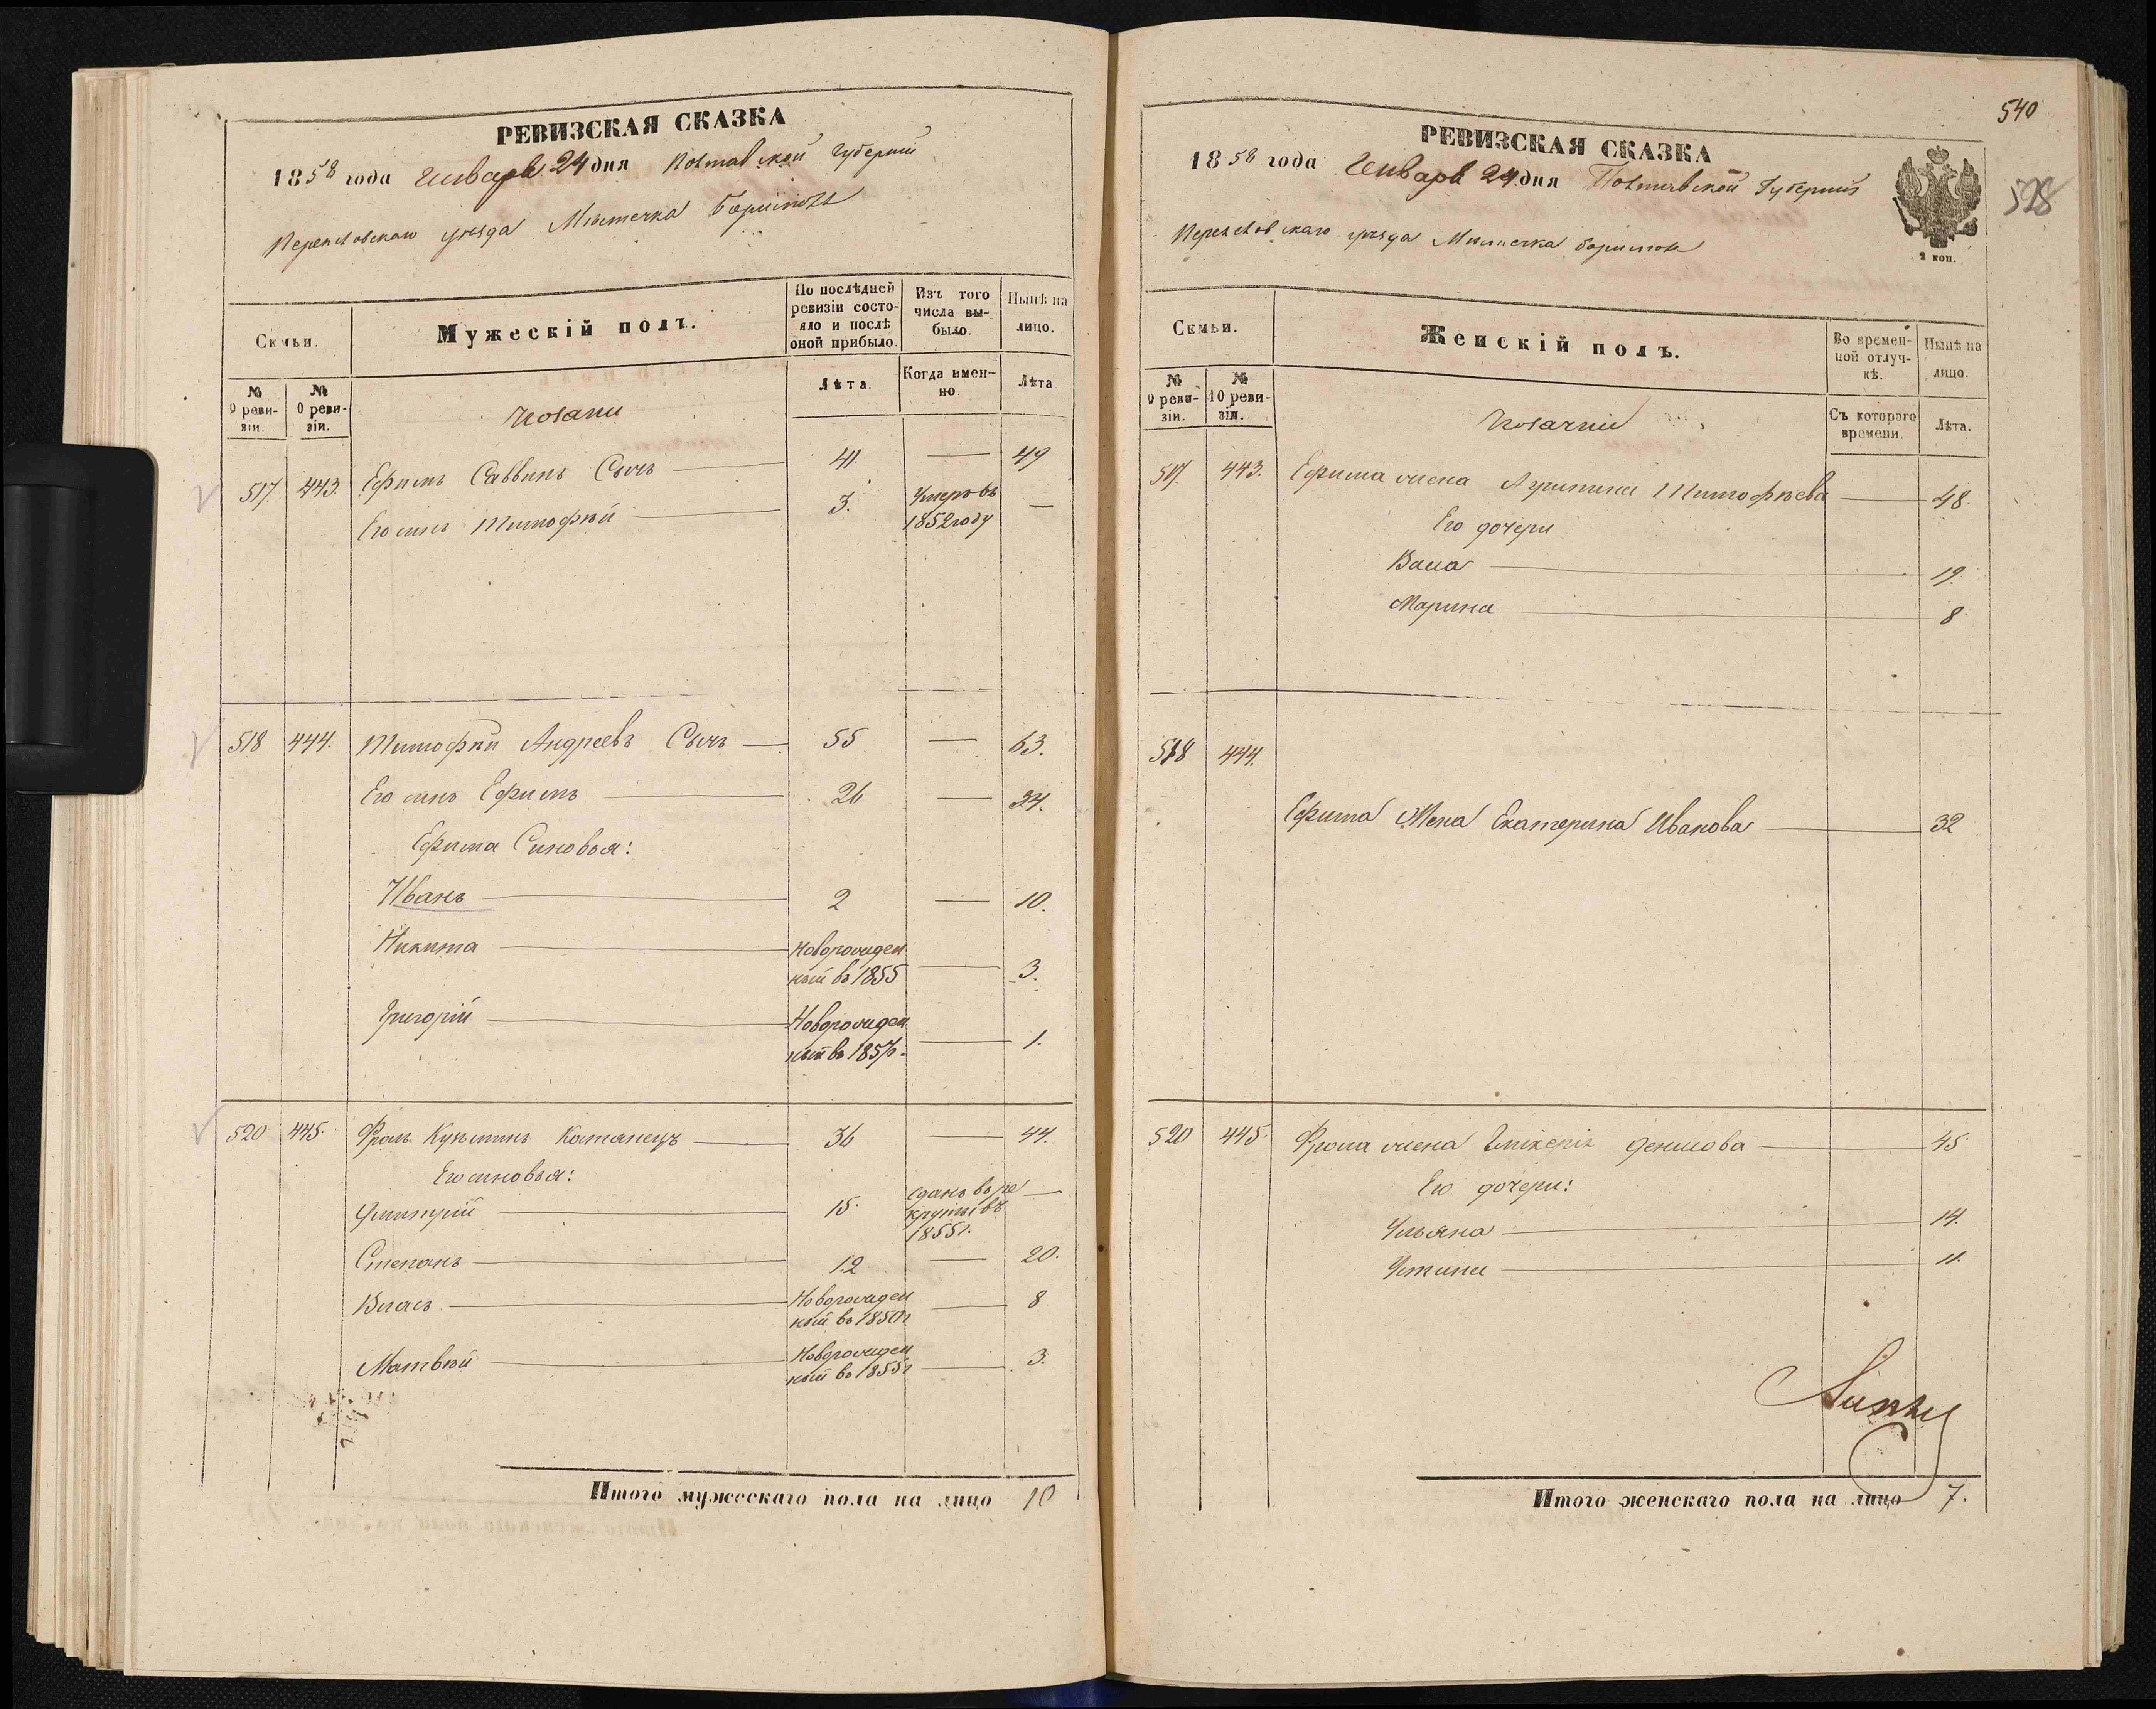 РЕВИЗСКАЯ СКАЗКА
1858 года Января 24 дня Полтавской Губерніи
Переяславскаго уѣзда Мѣстечка Борисполя
Семьи.
Мужескій полъ.
По послѣдней ревизіи состояло и послѣ оной прибыло.
Изъ того числа выбыло.
Нынѣ на лицо.
№ 9 ревизіи.
№ 10 ревизіи.
Козаки
Лѣта.
Когда именно.
Лѣта
517. 443. Ефимъ Саввинъ Сычъ 41. — 49
Его сынъ Тимофѣй 3. Умеръ въ 1852 году —
518 444. Тимофѣй Андреевъ Сычъ 55 — 63.
Его сынъ Ефимъ 26 — 34.
Ефима Сыновья:
Иванъ 2 — 10.
Никита Новорожденный въ 1855 — 3.
Григорій Новорожденный въ 1857г. — 1.
520 445. Фролъ Кузьминъ Костанецъ 36 — 44.
Его сыновья:
Дмитрій 15. Сданъ въ рекруты въ 1855г. —
Степанъ 12 — 20.
Власъ Новорожденный въ 1850г — 8
Матвѣй Новорожденный въ 1855г — 3.
Итого мужескаго пола на лицо 10
540
528
РЕВИЗСКАЯ СКАЗКА
1858 года Января 24 дня Полтавской Губерніи
2 коп.
Переяславскаго уѣзда Мѣстечка Борисполя
Семьи.
Женскій полъ.
Во временной отлучкѣ.
Нынѣ на лицо.
№ 9 ревизіи.
№ 10 ревизіи.
Козачки
Съ котораго времени.
Лѣта.
517. 443. Ефима жена Агрипина Тимофѣева 48.
Его дочери
Васа 19.
Марина 8
518 444.
Ефима Жена Екатерина Иванова 32
520 445. Фрола жена Гликерія Денисова 45.
Его дочери:
Ульяна 14.
Устина 11.
Итого женскаго пола на лицо 7.